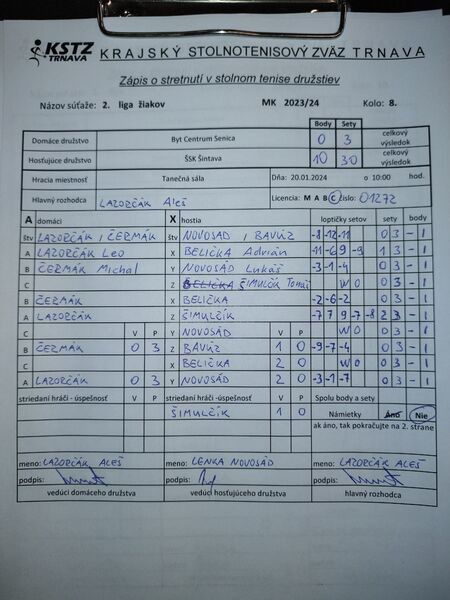 KSTZ TRNAVA KRAJSKÝ STOLNOTENISOVÝ ZVÄZ TRNAVA
Zápis o stretnutí v stolnom tenise družstiev
Názov súťaže: 2. liga žiakov MK 2023/24 Kolo: 8.
Body Sety
Domáce družstvo Byt Centrum Senica 0 3 celkový výsledok
Hosťujúce družstvo ŠSK Šintava 10 30 celkový výsledok
Hracia miestnosť Tanečná sála Dňa: 20.01.2024 o 10:00 hod.
Hlavný rozhodca LAZORČÁK Aleš Licencia: M A B C číslo: 01272
A domáci X hostia loptičky setov sety body
štv LAZORČÁK, ČERMÁK štv NOVOSAD, BAVÚZ -8 -12 -11 0 3 - 1
A LAZORČÁK Leo X BELIČKA Adrián -11 -6 9 -9 1 3 - 1
B ČERMÁK Michal Y NOVOSÁD Lukáš -3 -1 -4 0 3 - 1
C Z BELIČKA ŠIMULČÍK Tomáš WO 0 3 - 1
B ČERMÁK X BELIČKA -2 -6 -2 0 3 - 1
A LAZORČÁK Z ŠIMULČÍK -7 7 9 -7 -8 2 3 - 1
C V P Y NOVOSÁD V P WO 0 3 - 1
B ČERMÁK 0 3 Z BAVÚZ 1 0 -9 -7 -4 0 3 - 1
C X BELIČKA 2 0 WO 0 3 - 1
A LAZORČÁK 0 3 Y NOVOSÁD 2 0 -3 -1 -7 0 3 - 1
striedaní hráči - úspešnosť V P striedaní hráči -úspešnosť V P Spolu body a sety
ŠIMULČÍK 1 0 Námietky Áno Nie
ak áno, tak pokračujte na 2. strane
meno: LAZORČÁK ALEŠ meno: LENKA NOVOSÁD meno: LAZORČÁK ALEŠ
podpis: podpis: podpis:
vedúci domáceho družstva vedúci hosťujúceho družstva hlavný rozhodca